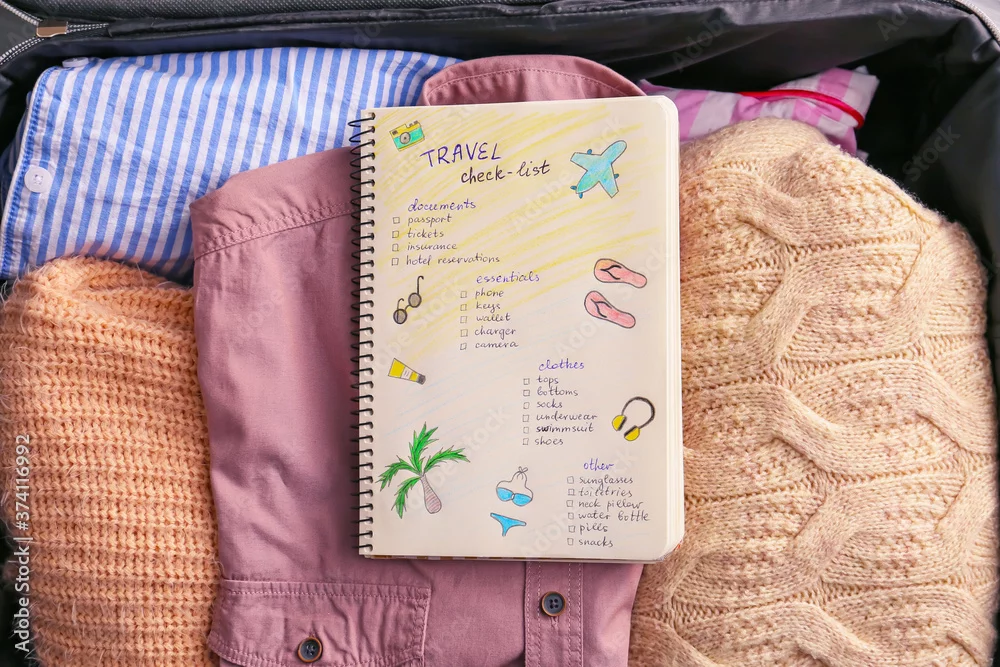 TRAVEL
check-list
documents
passport
tickets
insurance
hotel reservations
essentials
phone
keys
wallet
charger
camera
clothes
tops
bottoms
socks
underwear
swimmsuit
shoes
other
sunglasses
toiletries
neck pillow
water bottle
pills
snacks
Adobe Stock | #374116992
Adobe Stock
Adobe Stock
Adobe Stock